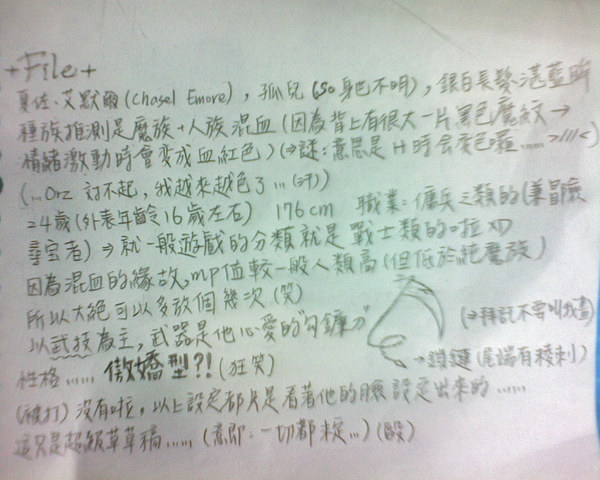 +File+
夏佐·艾默爾(Chasel Emore)，孤兒(So身世不明)，銀白長髮湛藍眸
種族推測是魔族+人族混血(因為背上有很大一片黑色魔紋→
情緒激動時會變成血紅色)(⇒謎:意思是H時會變色囉.....>///<)
(...Orz 對不起，我越來越色了...(汗))
24歲(外表年齡16歲左右) 176cm 職業:傭兵之類的(兼冒險
尋宝者)⇒就一般遊戲的分類就是戰士類的啦切
因為混血的緣故,mp值較一般人類高(但低於純魔族)
所以大絕可以多放個幾次(笑)
以武技為主,武器是他心愛的"勾鐮刀"
(⇒拜託不要叫我畫)
→鎖鏈(尾端有稜刺)
性格...... 傲嬌型?!(狂笑)
(被打)沒有啦，以上設定都只是看著他的臉設定出來的......
這只是超級草草稿......(意即:一切都未定...)(毆)